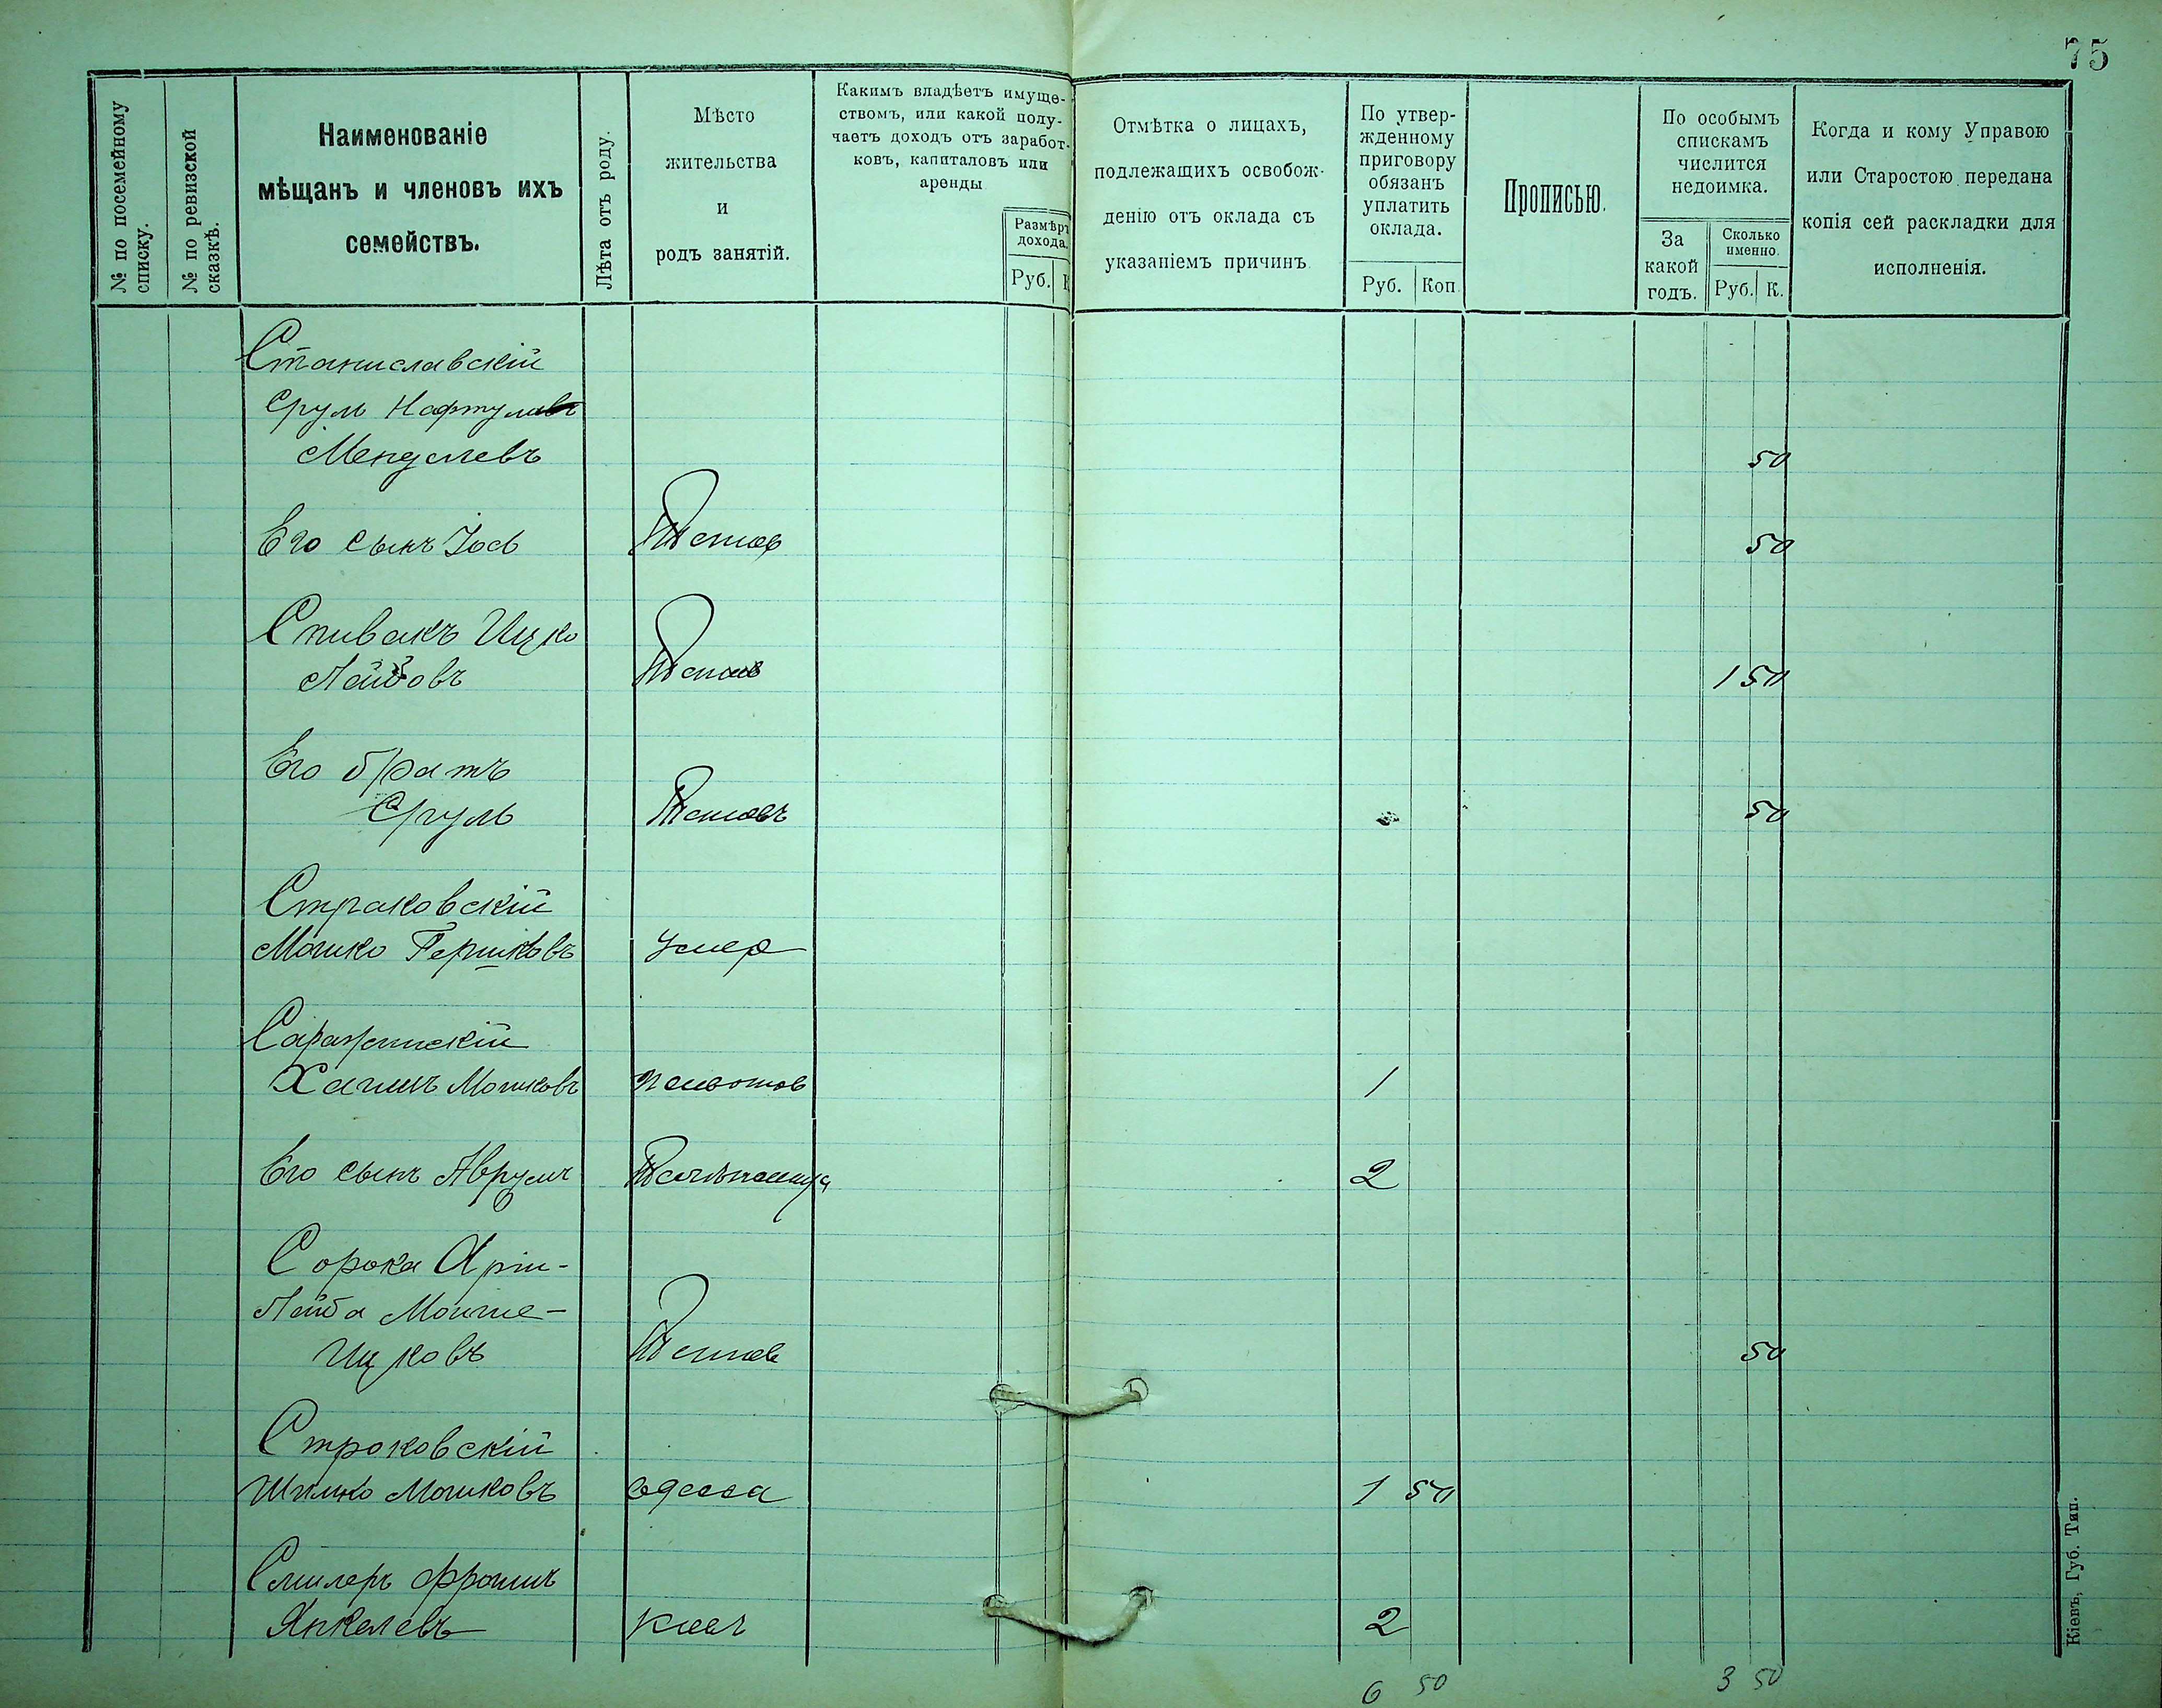 75
№ по посемейному списку.
№ по ревизской сказкѣ.
Наименованіе
мѣщанъ и членовъ ихъ
семействъ.
Лѣта отъ роду.
Мѣсто
жительства
и
родъ занятій.
Какимъ владѣетъ имуще-
ствомъ, или какой полу-
чаетъ доходъ отъ заработ-
ковъ, капиталовъ или
аренды
Размѣръ
дохода.
Руб. К
Отмѣтка о лицахъ,
подлежащихъ освобож-
денію отъ оклада съ
указаніемъ причинъ
По утвер-
жденному
приговору
обязанъ
уплатить
оклада.
Руб. Коп.
Прописью.
По особымъ
спискамъ
числится
недоимка.
За
какой
годъ.
Сколько
именно.
Руб. К.
Когда и кому Управою
или Старостою передана
копія сей раскладки для
исполненія.
Станиславскій
Сруль Нафтула
Менделевъ 50
Его сынъ Іось 50
Спивакъ Ицко
Лейбовъ 1 50
Его братъ
Сруль 50
Страковскій
Мошко Гершковъ Умер
Хаимъ Мошковъ 1
Его сынъ Аврумъ 2
Сорока Арін-
Лейба Мойше-
Ицковъ 50
Строковскій
Шмилко Мошковъ Одесса 1 50
Смилеръ Фроимъ
Янкелевъ Киевъ 2
6 50 3 50
Кіевъ, Губ. Тип.